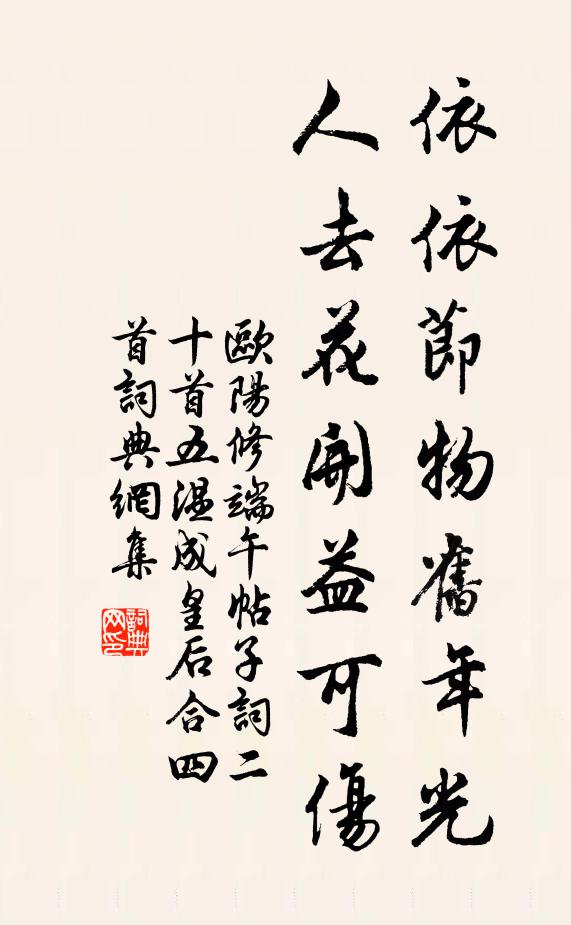 依依節物舊年光
人去花開益可傷
歐陽修端午帖子詞二
十首五溫成皇后合四
首詞典網集
詞典
网印